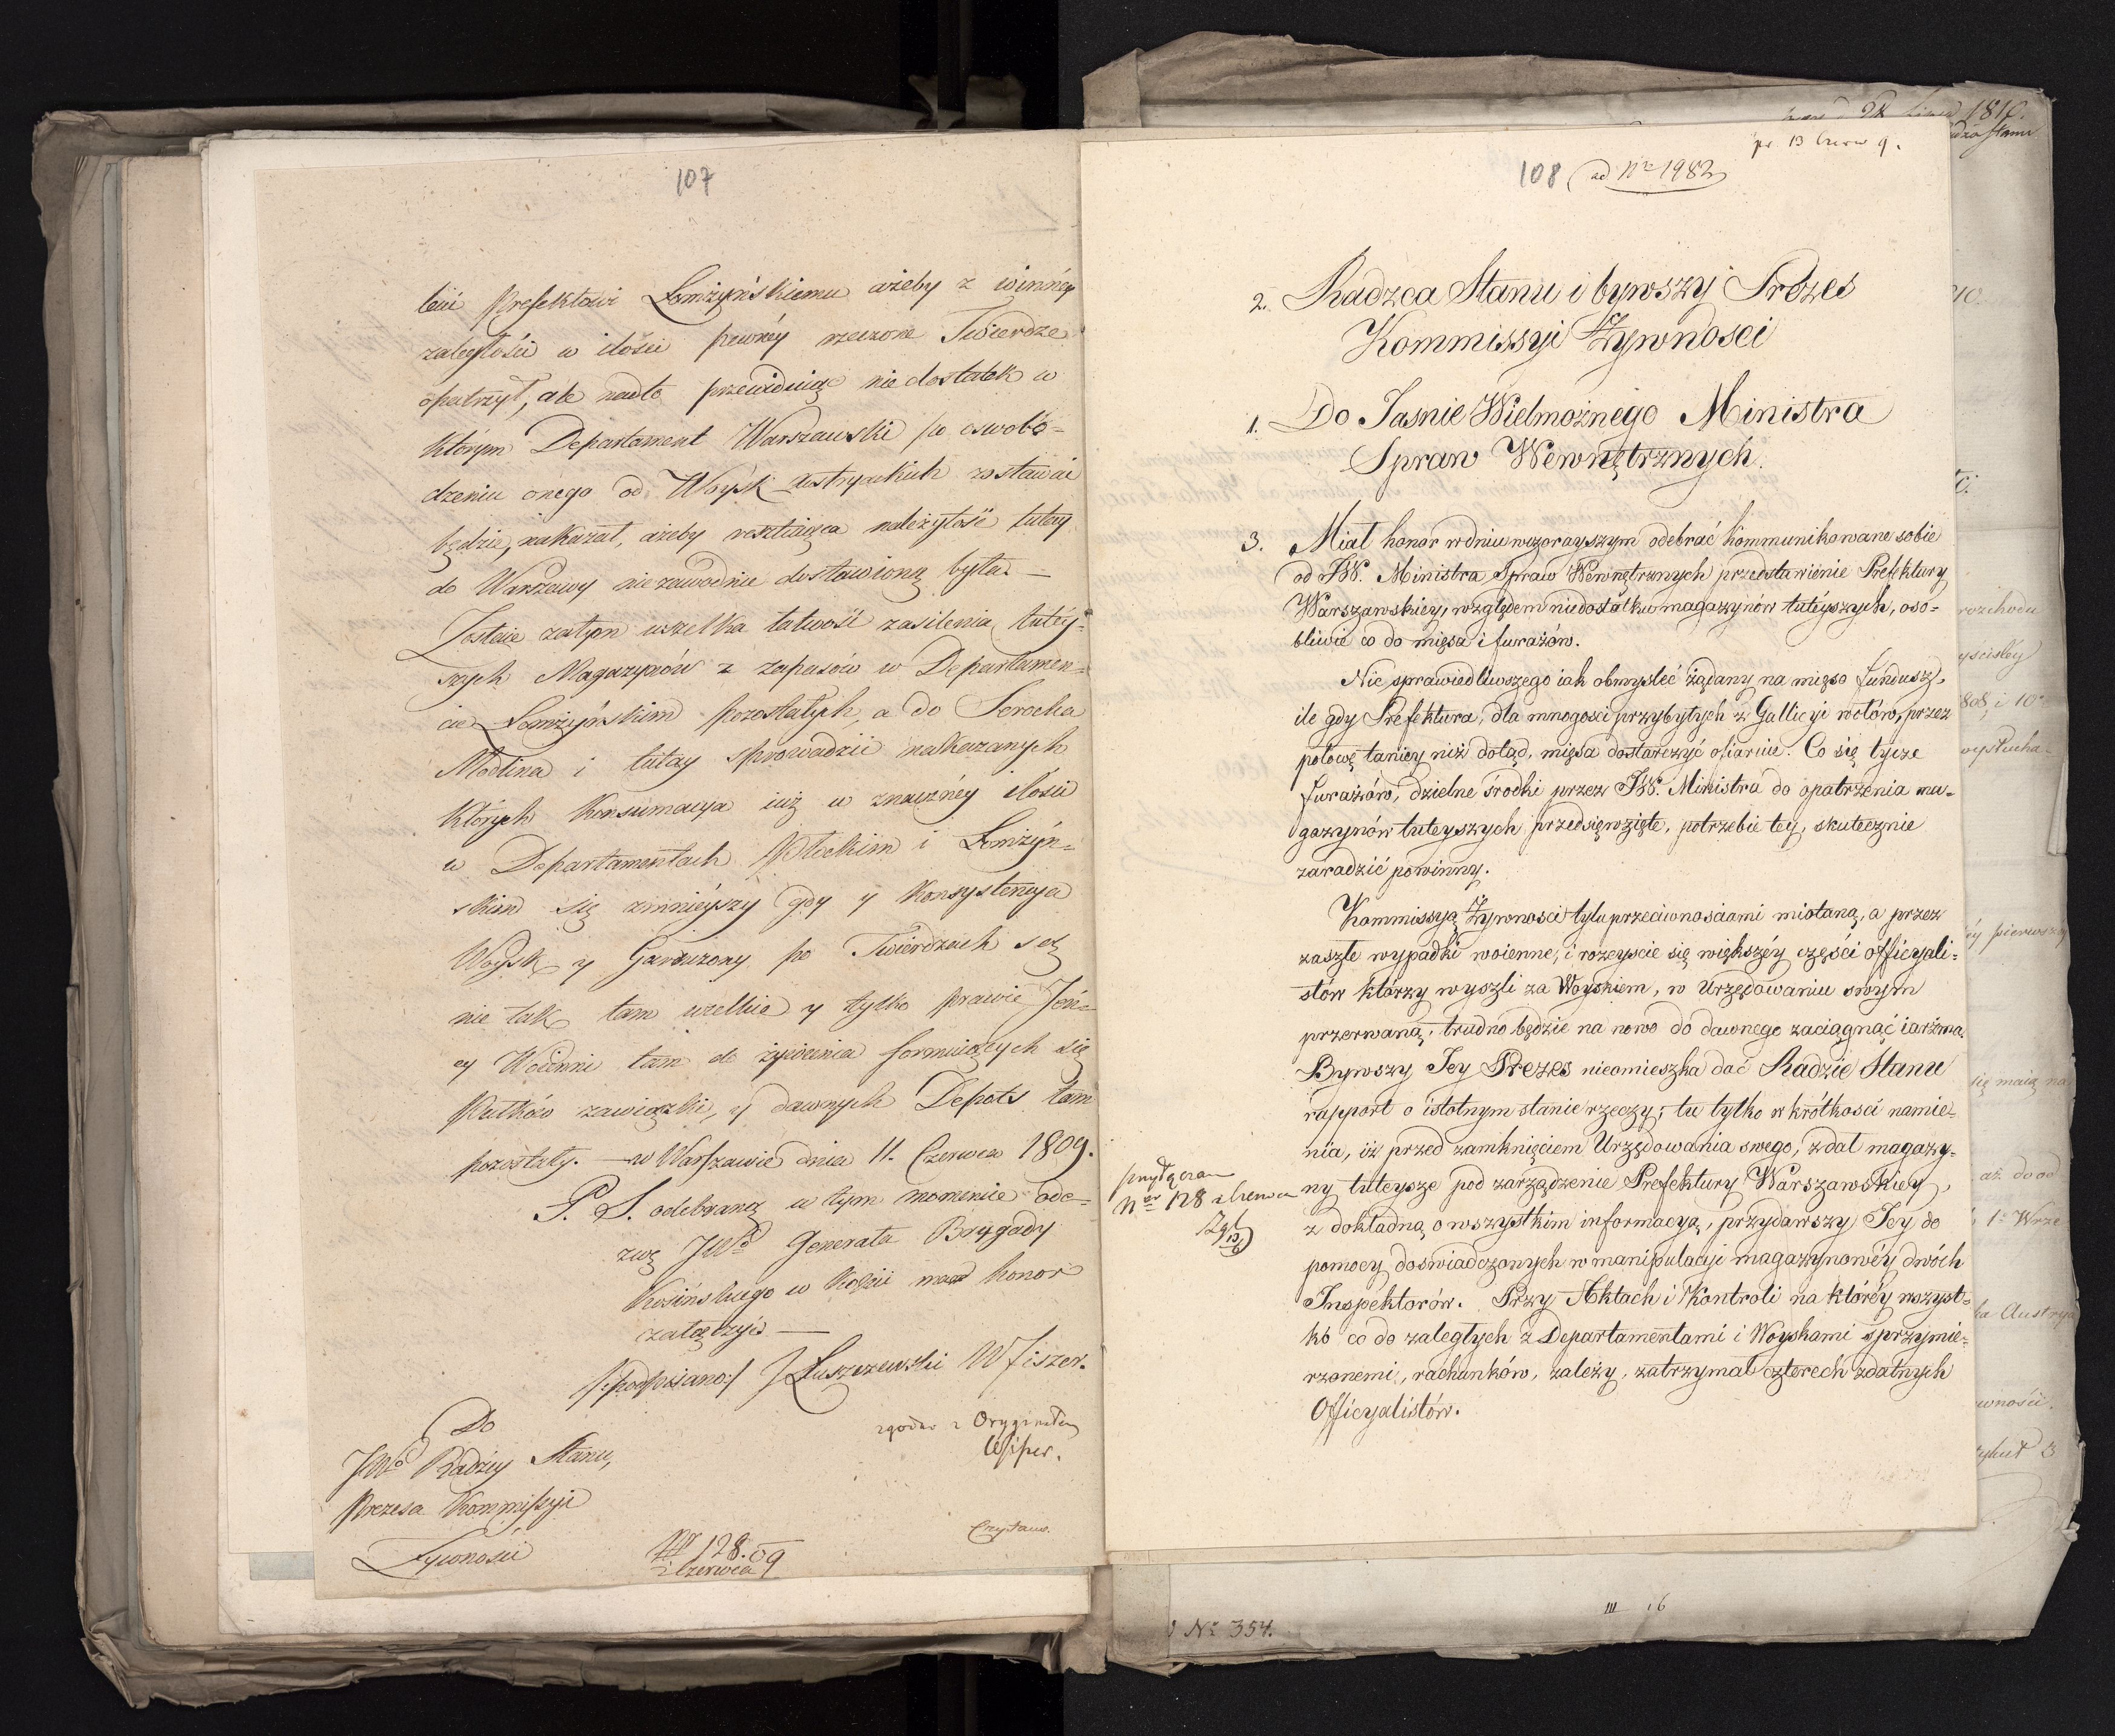 107
leić Prefektowi Łomżyńskiemu ażeby z winnéy
zaległości w ilości pewnéy rzeczone Twierdze
opatrzył, ale nadto przewiduiąc niedostatek w
którym Departament Warszawski po oswobo-
dzeniu onego od Woysk Austryackich zostawać
będzie, nakazał, ażeby resztuiąca należytość tutay
do Warszawy niezawodnie dostawioną była. —
Zostaie zatym wszelka łatwość zasilenia tutéy-
szych Magazynów z zapasów w Departamen-
cie Łomżyńskim pozostałych, a do Serocka
Modlina i tutay sprowadzić nakazanych
których Konsumacya iuż w znaczney ilości
w Departamentach Płockim i Łomżyń-
skim się zmnieyszy gdy y Konsystencya
Woysk y Garnizony po Twierdzach są
nie tak tam wielkie y tylko prawie Jeń-
cy Woienni tam do żywienia formuiących się
Pułków zawiązki, y dawnych Depots tam
pozostały. — w Warszawie dnia 11. Czerwca 1809.
P. S. odebraną w tym momencie ode-
zwę JWo Generała Brygady
Kosińskiego w Kopii mam honor
załączyć —
/:podpisano:/ J Łuszczewski W Fiszer.
Do
JWo Radzcy Stanu,
Prezesa Kommissyi
Żywności
zgodno z Oryginałem
No 128. 09
z Czerwca
108 ad Nr 1982
pr 13 Czerw 9.
2. Radzca Stanu i bywszy Prezes
Kommissyi Żywnosci
1. Do Jasnie Wielmożnego Ministra
Spraw Wewnętrznych.
3. Miał honor w dniu wczorayszym odebrać kommunikowane sobie
od JW. Ministra Spraw Wewnętrznych przedstawienie Prefektury
Warszawskiey, względem niedostatku magazynów tuteyszych, oso-
bliwie co do mięsa i furażów.
Nic sprawiedliwszego iak obmysleć żądany na mięso fundusz,
ile gdy Prefektura, dla mnogosci przybyłych z Gallicyi wołów, przez
połowę taniey niż dotąd, mięsa dostarczyć ofiaruie. Co się tycze
furażów, dzielne środki przez JW. Ministra do opatrzenia ma-
gazynów tuteyszych przedsięwzięte, potrzebie tey, skutecznie
zaradzić powinny.
Kommissyą Żywnosci tylu przeciwnościami miotaną, a przez
zaszłe wypadki woienne, i rozeyscie się większéy części officyali-
stów którzy wyszli za Woyskiem, w Urzędowaniu swym
przerwaną, trudno będzie na nowo do dawnego zaciągnąć iarzma.
Bywszy Jey Prezes nieomieszka dać Radzie Stanu
rapport o istotnym stanie rzeczy; tu tylko w krótkosci namie-
nia, iż przed zamknięciem Urzędowania swego, zdał magazy-
ny tuteysze pod zarządzenie Prefektury Warszawskiey,
z dokładną o wszystkim informacyą, przydawszy Jey do
pomocy doswiadczonych w manipulacyi magazynowéy dwóch
Inspektorów. Przy Aktach i Kontroli na któréy wszyst-
ko co do zaległych z Departamentami i Woyskami sprzymie-
rzonemi, rachunków, zależy, zatrzymał czterech zdatnych
Officyalistów.
przyłączam
Ner 128 z Czerwca
No 354.
III 16